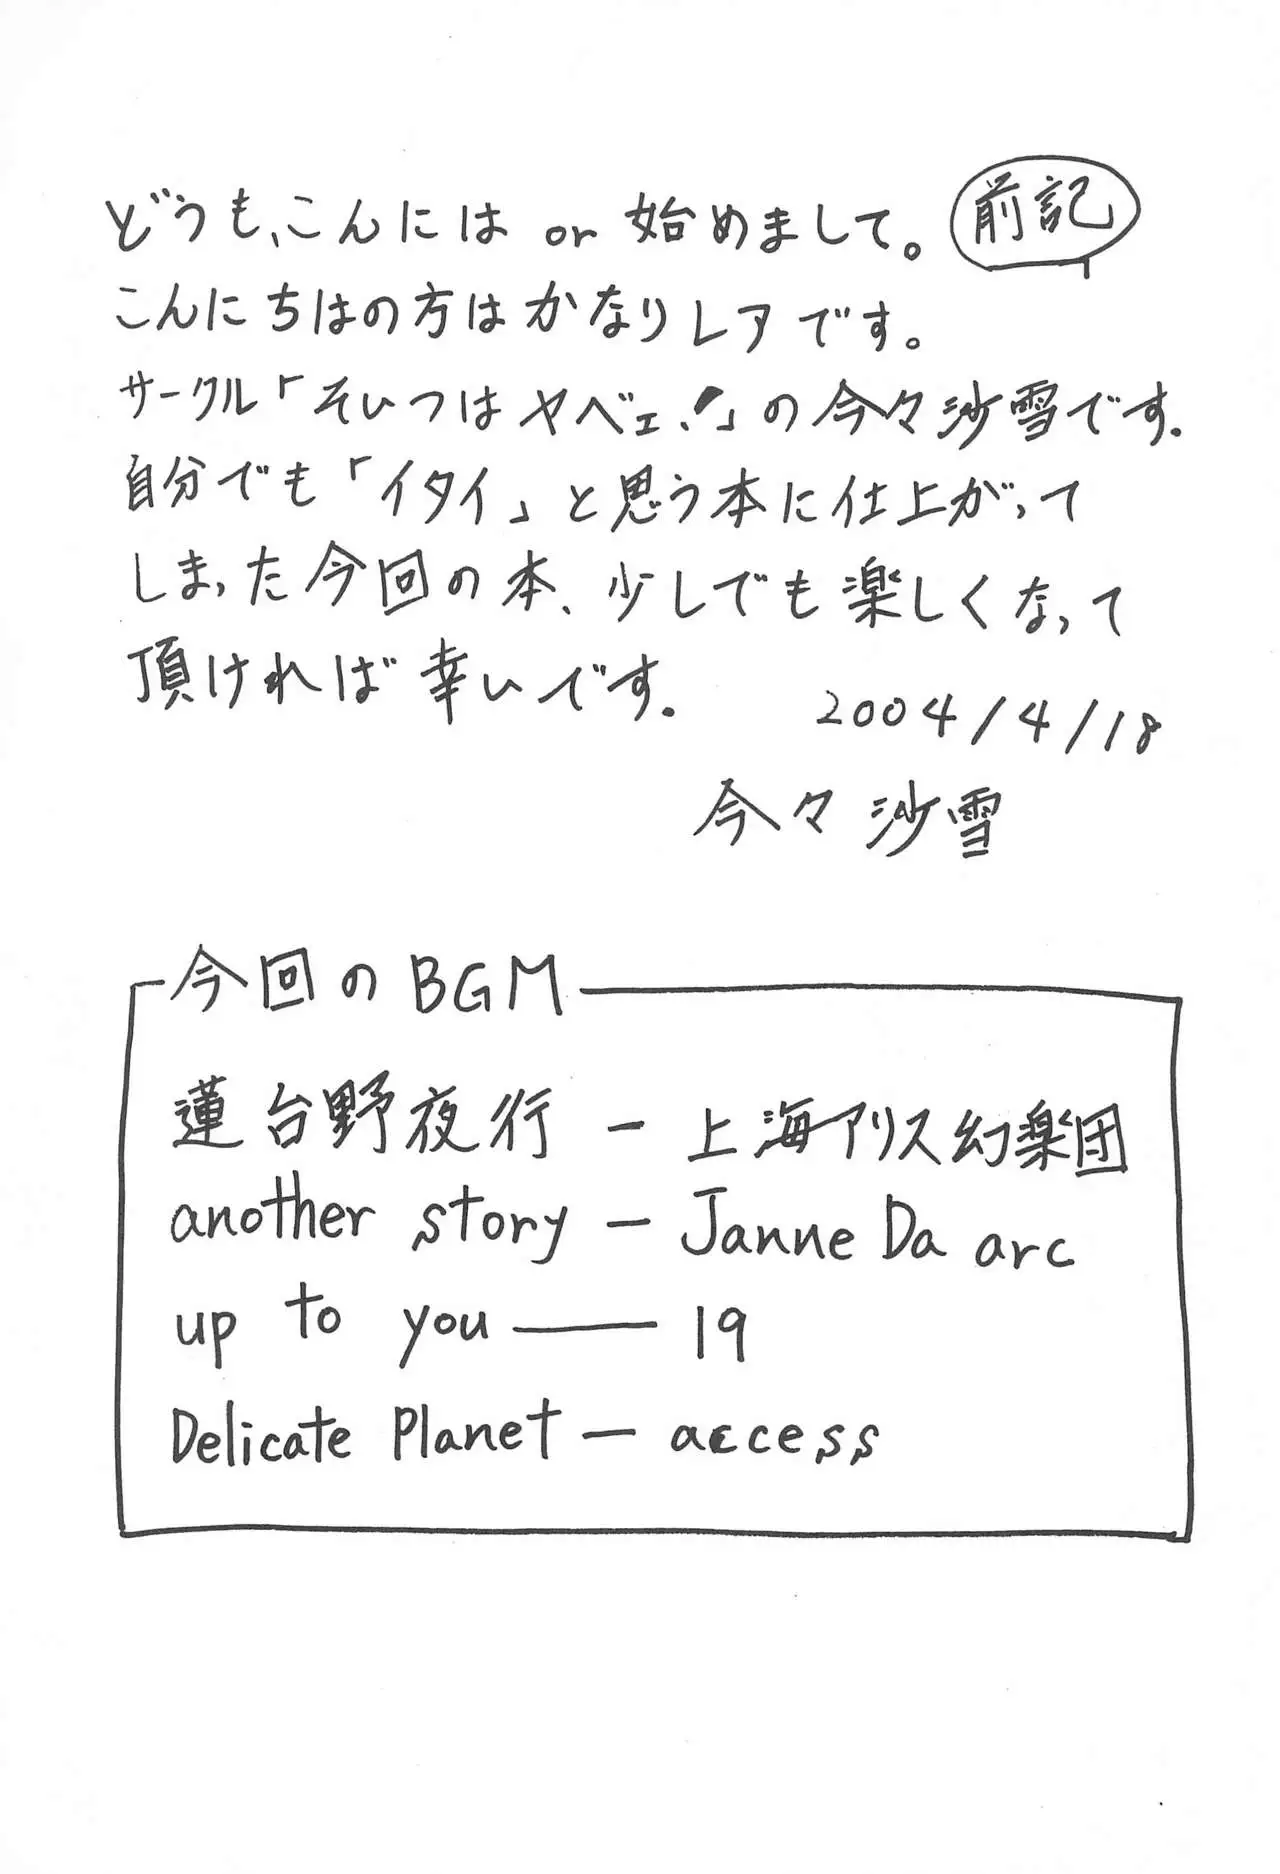 前記
どうも、こんには or 始めまして。
こんにちはの方はかなりレアです。
サークル「そいつはヤベェ!」の今々沙雪です.
自分でも「イタイ」と思う本に仕上がって
しまった今回の本、少しでも楽しくなって
頂ければ幸いです.
2004/4/18
今々 沙雪
今回のBGM
蓮台野夜行 ー 上海アリス幻楽団
another story ー Janne Da arc
up to you ー 19
Delicate Planet ー access